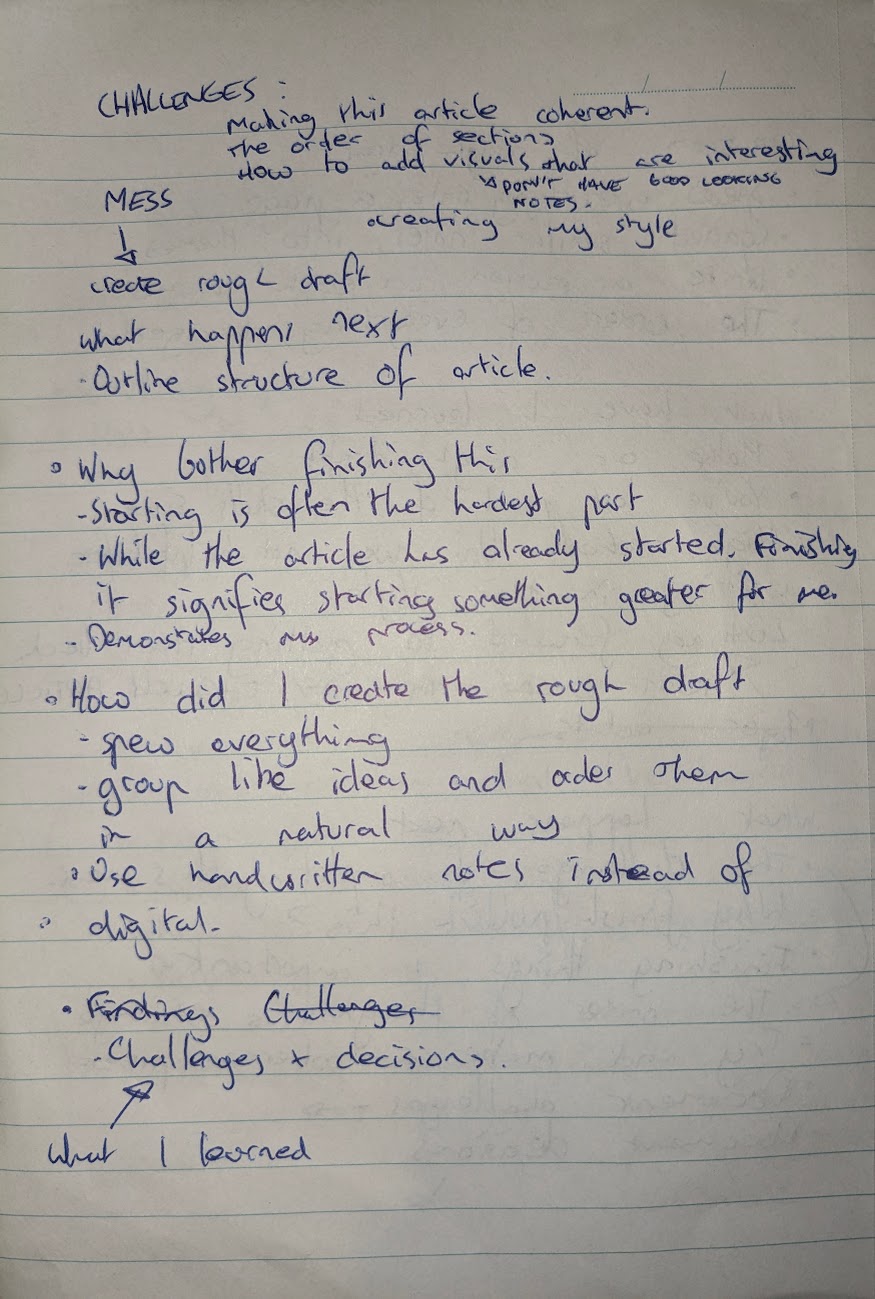 CHALLENGES :
Making this article coherent.
The order of sections
How to add visuals that are interesting
↳ DON'T HAVE GOOD LOOKING
NOTES.
MESS
creating my style
create rough draft
what happens next
- Outline structure of article.
• Why bother finishing this
- Starting is often the hardest part
- While the article has already started. Finishing
it signifies starting something greater for me.
- Demonstrates my process.
• How did I create the rough draft
- spew everything
- group like ideas and order them
in a natural way
• Use handwritten notes instead of
• digital.
• Findings Challenges
- Challenges + decisions.
What I learned